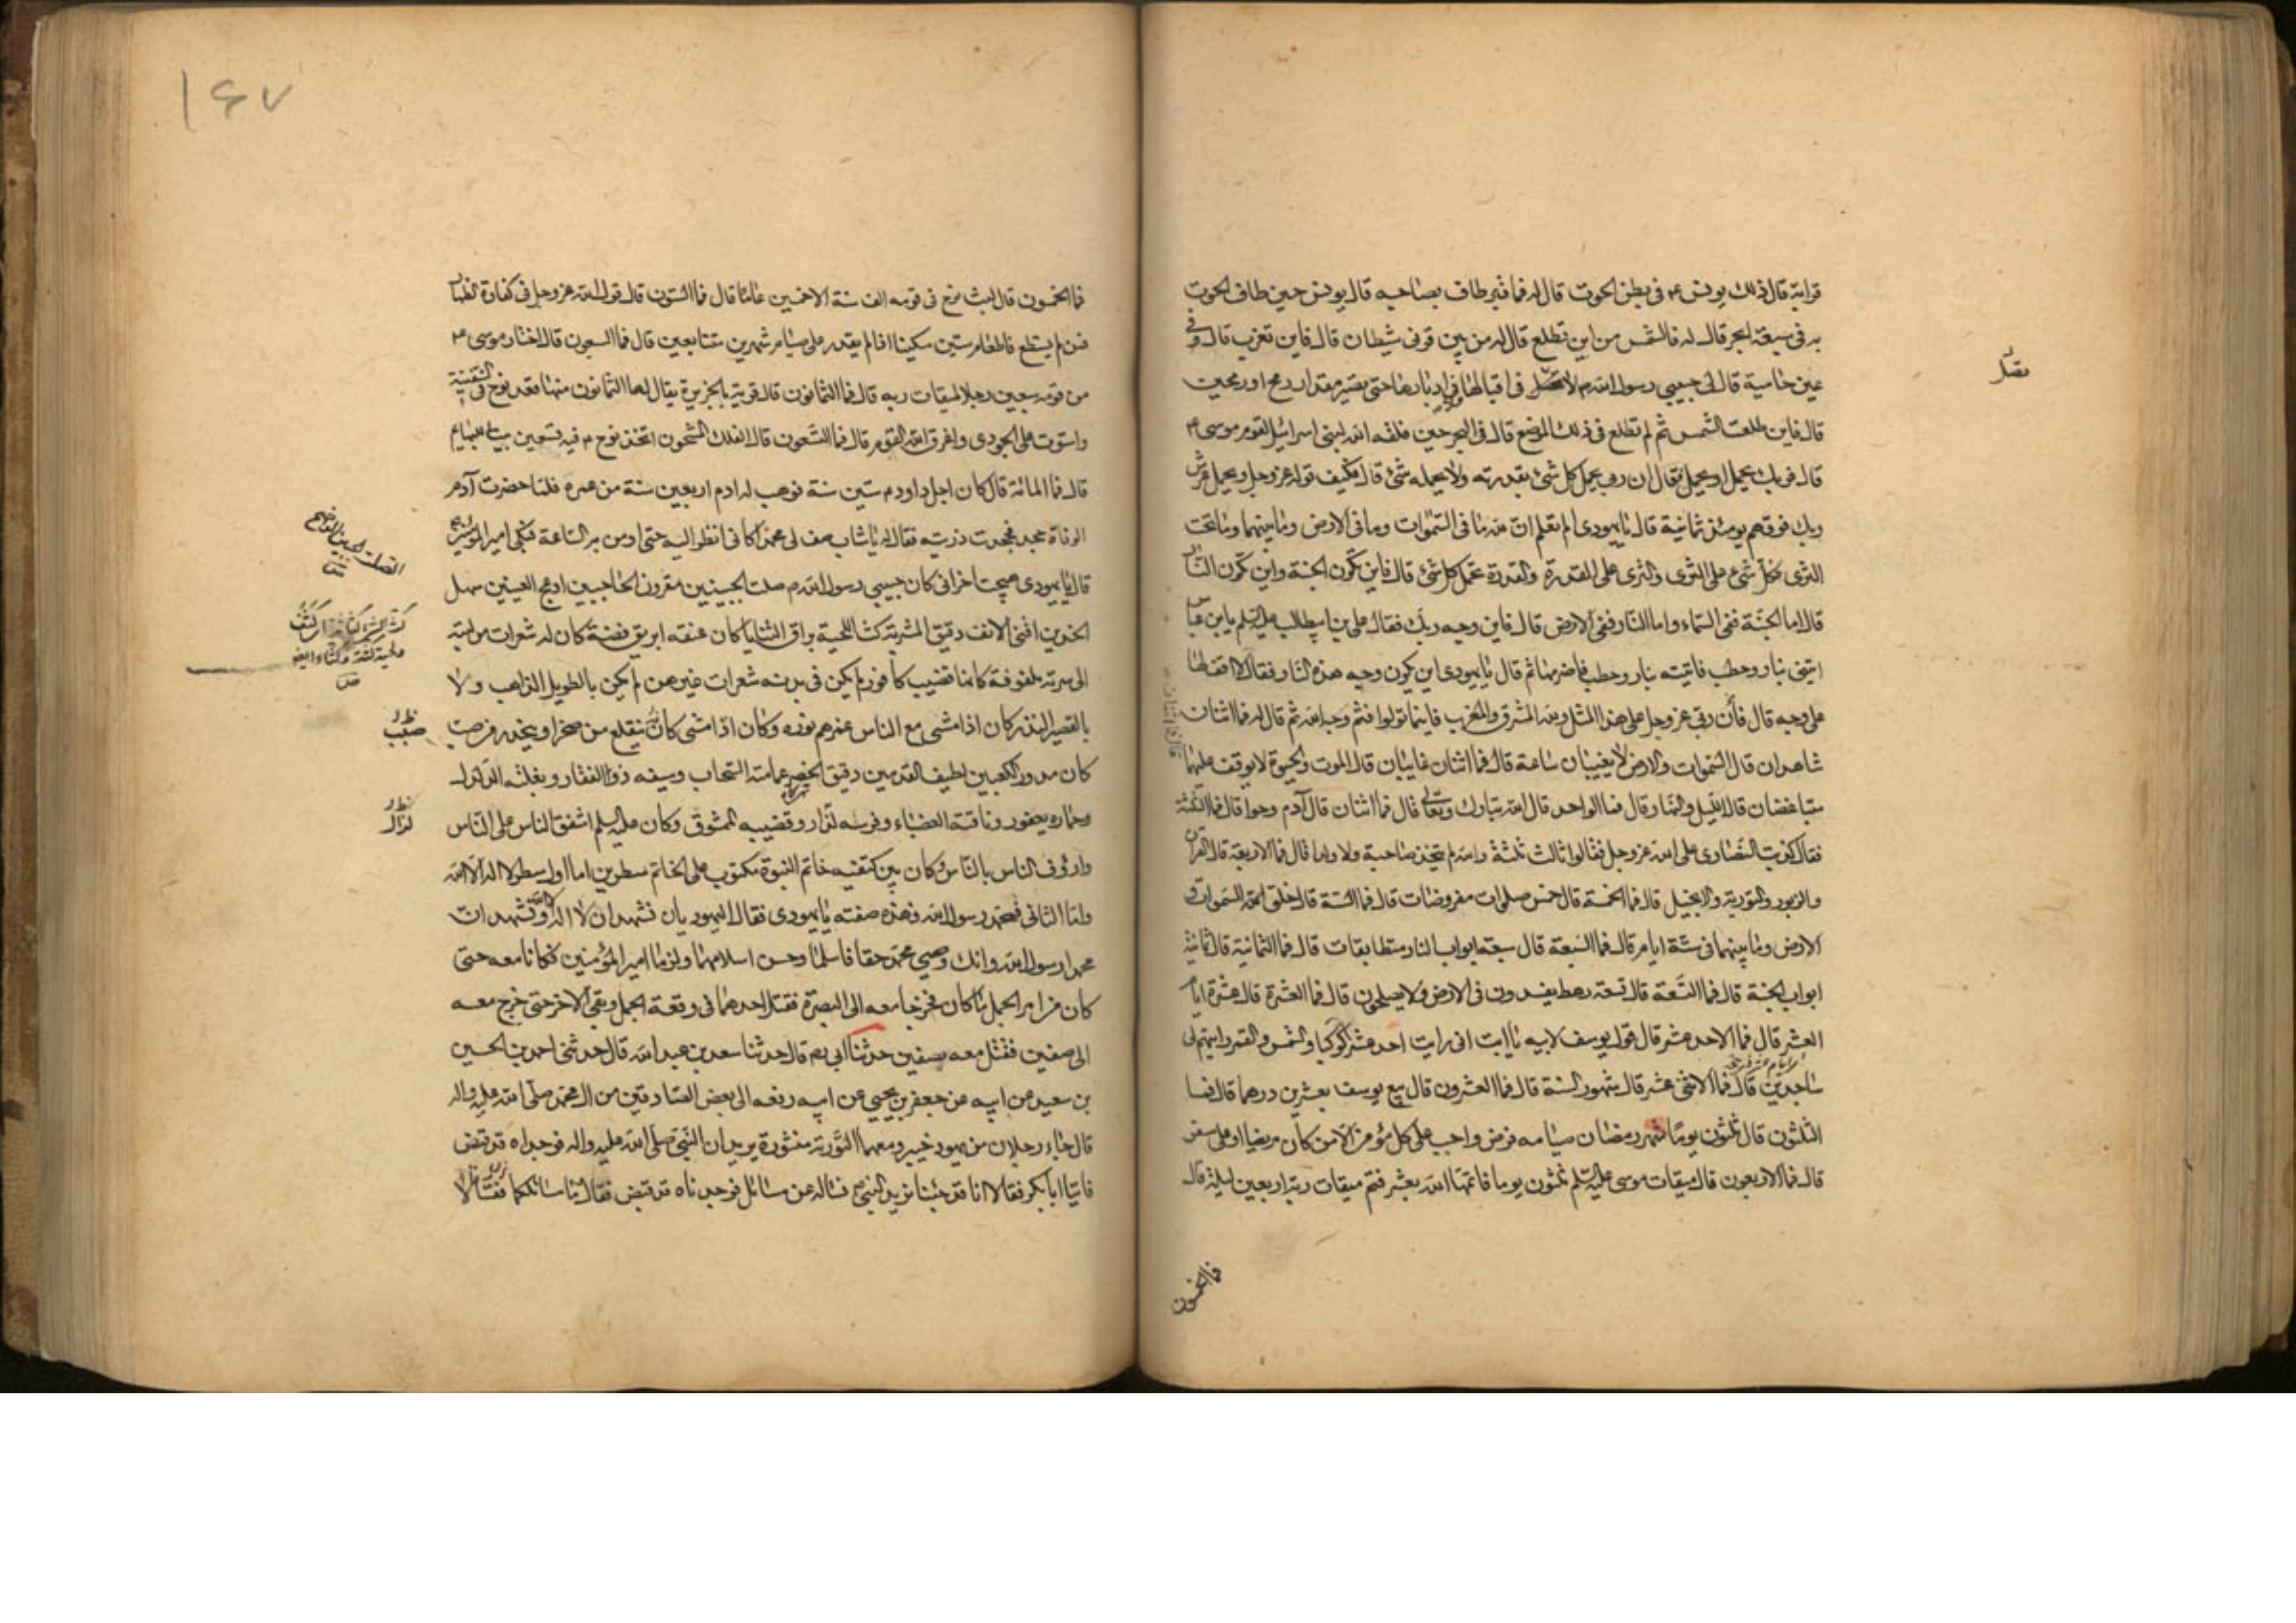 قرابة قال ذلك يونس ع‍ في بطن الحوت قال له فما قبر طاف بصاحبه قال يونس حين طاف الحوت
به في سبعة ابحر قال له فالشمس من اين تطلع قال له من بين قرني شيطان قال فاين تغرب قال في
عين حامية قال لي حبيبي رسول الله ص لا تصل في اقبالها ولا في ادبارها حتى تصير مقدار رمح او رمحين
تصل
قال فاين طلعت الشمس ثم لم تطلع في ذلك الموضع قال في البحر حين فلقه الله لبني اسرائيل لقوم موسى ع‍
قال فربك يحمل او يحمل فقال ان ربي يحمل كل شئ بقدرته ولا يحمله شئ قال فكيف قوله عز وجل ويحمل عرش
ربك فوقهم يومئذ ثمانية قال يا يهودي الم تعلم ان لله ما في السموات وما في الارض وما بينهما وما تحت
الثرى فكل شئ على الثرى والثرى على القدرة والقدرة تحمل كل شئ قال فاين تكون الجنة واين تكون النار
قال اما الجنة ففي السماء واما النار ففي الارض قال فاين وجه ربك فقال علي بن ابيطالب عليه السلم يا بن عباس
ايتني بنار وحطب فاتيته بنار وحطب فاضرمها ثم قال يا يهودي اين يكون وجه هذه النار فقال لا اقف لها
على وجه قال فأن ربي عز وجل على هذا المثل ولله المشرق والمغرب فاينما تولوا فثم وجه الله ثم قال له فما اثنان
شاهدان قال السموات والارض لا يغيبان ساعة قال فما اثنان غايبان قال الموت والحيوة لا يوقف عليهما
قال فما اثنان
متباغضان قال الليل والنهار وقال فما الواحد قال الله تبارك وتعالى قال فما اثنان قال آدم وحوا قال فما الثلثة
فقال كذبت النصارى على الله عز وجل فقالوا ثالث ثلثة والله لم يتخذ صاحبة ولا ولدا قال فما الاربعة قال القران
والزبور والتورية والانجيل قال فما الخمسة قال خمس صلوات مفروضات قال فما الستة قال خلق الله السموات و
الارض وما بينهما في ستة ايام قال فما السبعة قال سبعة ابواب النار متطابقات قال فما الثمانية قال ثمانية
ابواب الجنة قال فما التسعة قال تسعة رهط يفسدون في الارض ولا يصلحون قال فما العشرة قال عشرة ايام
العشر قال فما الاحد عشر قال قول يوسف لابيه يا ابت اني رايت احد عشر كوكبا والشمس والقمر رايتهم لي
ساجدين قال فما الاثنى عشر قال شهور السنة قال فما العشرون قال بيع يوسف بعشرين درهما قال فما
الثلثون قال ثلثون يوما شهر رمضان صيامه فرض واجب على كل مؤمن الا من كان مريضا او على سفر
قال فما الاربعون قال ميقات موسى عليه السلم ثلثون يوما فاتمها الله بعشر فتم ميقات ربه اربعين ليلة قال
فما الخمسون
١٦٧
فما الخمسون قال لبث نوح في قومه الف سنة الا خمسين عاما قال فما الستون قال قول الله عز وجل في كفارة الظهار
فمن لم يستطع فاطعام ستين مسكينا اذا لم يقدر على صيام شهرين متتابعين قال فما السبعون قال اختار موسى ع‍
من قومه سبعين رجلا لميقات ربه قال فما الثمانون قال قرية بالجزيرة يقال لها الثمانون منها قعد نوح في السفينة
واستوت على الجودي واغرق الله القوم قال فما التسعون قال الفلك المشحون اتخذ نوح ع فيه تسعين بيتا للبهايم
قال فما المائة قال كان اجل داود ع ستين سنة فوهب له ادم اربعين سنة من عمره فلما حضرت آدم
الوفاة جحد فجحدت ذريته فقال له يا شاب صف لي محمدا كاني انظر اليه حتى اومن به الساعة فبكى امير المؤمنين
قال يا يهودي هيجت احزاني كان حبيبي رسول الله ص صلت الجبينين مقرون الحاجبين ادعج العينين سهل
الخدين اقنى الانف دقيق المشربة كث اللحية براق الثنايا كان عنقه ابريق فضة كان له شعرات من لبته
الى سرته ملفوفة كانها قضيب كافور لم يكن في بدنه شعرات غيرهن لم يكن بالطويل الذاهب ولا
بالقصير النذر كان اذا مشى مع الناس غمرهم نوره وكان اذا مشى كانه ينقلع من صخر او ينحدر من صبب
صبب
كان مدور الكعبين لطيف القدمين دقيق الخصر عمامته السحاب وسيفه ذو الفقار وبغلته الدلدل
وحماره يعفور وناقته العضباء وفرسه لزاز وقضيبه الممشوق وكان عليه السلم اشفق الناس على الناس
لزاز
واروف الناس بالناس وكان بين كتفيه خاتم النبوة مكتوب على الخاتم سطرين اما اول سطر لا اله الا الله
واما الثاني فمحمد رسول الله وهذه صفته يا يهودي فقال اليهوديان نشهد ان لا اله الا الله ونشهد ان
محمدا رسول الله وانك وصي محمد حقا فاسلما وحسن اسلامهما ولزما امير المؤمنين فكانا معه حتى
كان من امر الجمل ما كان فخرجا معه الى البصرة فقتل احدهما في وقعة الجمل وبقي الاخر حتى خرج معه
الى صفين فقتل معه بصفين حدثنا ابي ره قال حدثنا سعد بن عبد الله قال حدثني احمد بن الحسين
بن سعيد عن ابيه عن جعفر بن يحيى عن ابيه رفعه الى بعض الصادقين من ال محمد صلى الله عليه واله
قال جاء رجلان من يهود خيبر ومعهما التورية منشورة يريدان النبي صلى الله عليه واله فوجداه قد قبض
فاتيا ابا بكر فقالا انا قد جئنا نريد النبي ص نساله عن مسائل فوجدناه قد قبض فقال وما مسائلكما فقالا